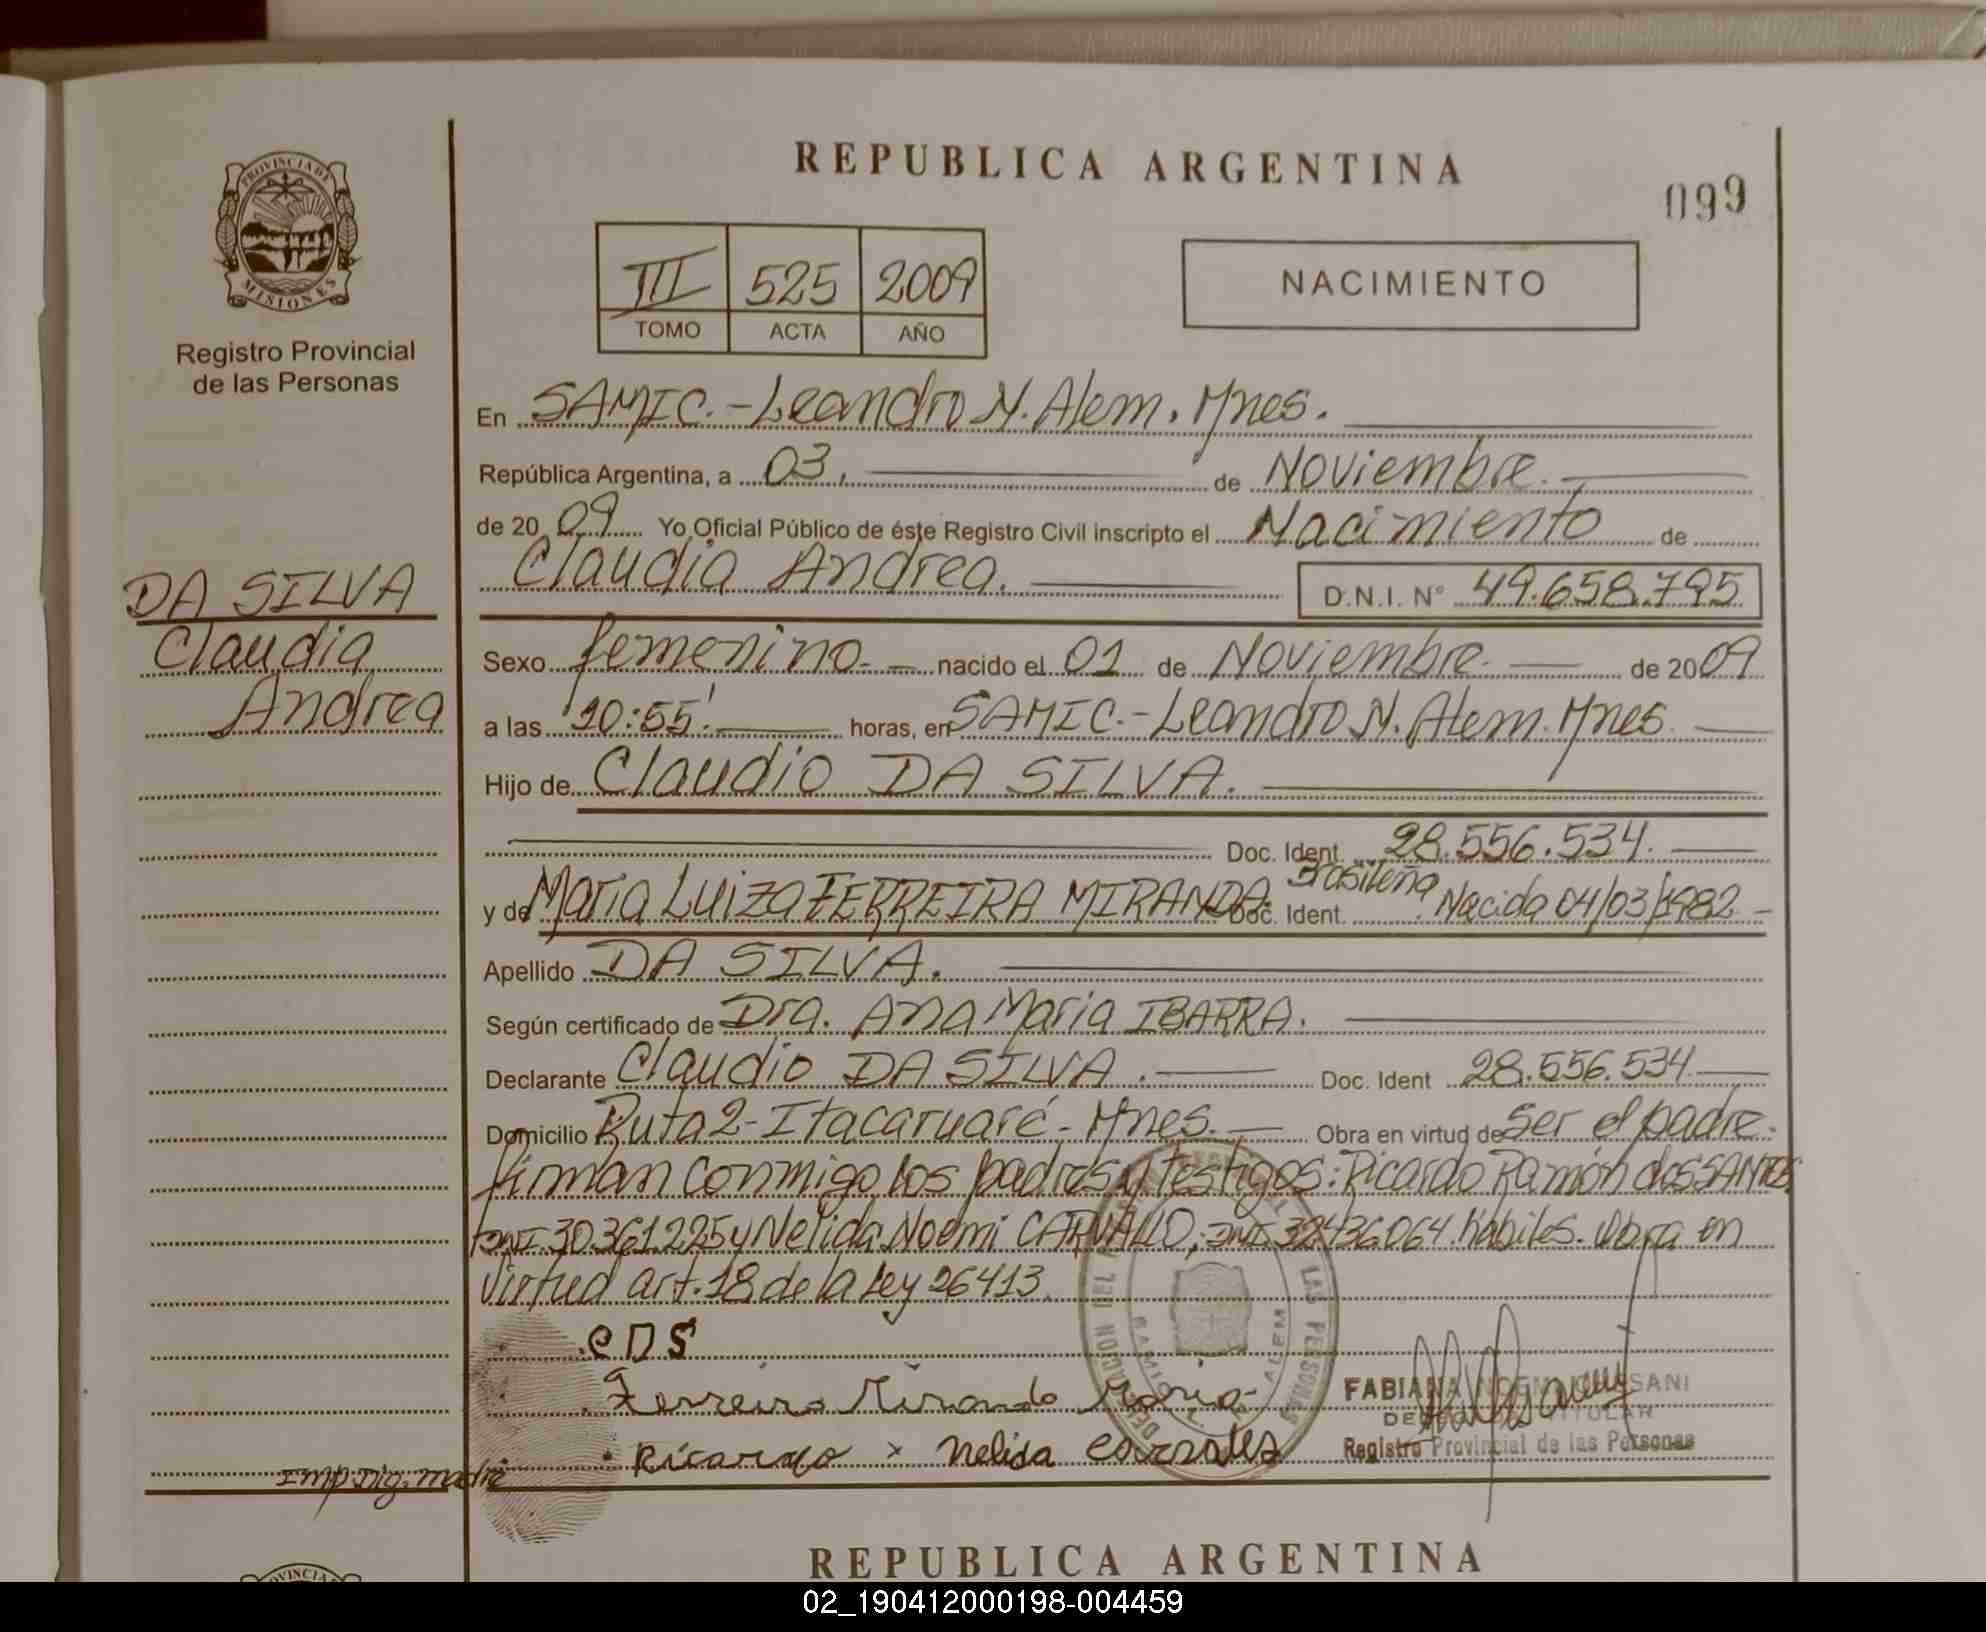 REPUBLICA ARGENTINA
099
PROVINCIA DE
MISIONES
Registro Provincial
de las Personas
III 525 2009
TOMO ACTA AÑO
NACIMIENTO
En SAMIC.-Leandro N. Alem. Mnes.
República Argentina, a 03, de Noviembre.
de 20 09 Yo Oficial Público de éste Registro Civil inscripto el Nacimiento de
Claudia Andrea. D.N.I. N° 49.658.795
DA SILVA
Claudia
Andrea
Sexo femenino nacido el 01 de Noviembre de 2009
a las 10:55' horas, en SAMIC.-Leandro N. Alem. Mnes.
Hijo de Claudio DA SILVA.
Doc. Ident. 28.556.534.
y de Maria Luiza FERREIRA MIRANDA. Doc. Ident. Brasileña Nacida 04/03/1982
Apellido DA SILVA.
Según certificado de Dra. Ana Maria IBARRA.
Declarante Claudio DA SILVA. Doc. Ident 28.556.534
Domicilio Ruta 2-Itacaruaré-Mnes. Obra en virtud de Ser el padre.
firman conmigo los padres y testigos: Ricardo Ramón dos SANTOS
DNI.30.361.225 y Nelida Noemi CARVALLO, DNI.32436064. habiles. Obra en
virtud art. 18 de la Ley 26413.
CDS
Ferreira Miranda Maria
Ricardo x Nelida
Imp. Dig. madre
FABIANA NOEMI
TITULAR
Registro Provincial de las Personas
LAS PERSONAS
ALEM
REPUBLICA ARGENTINA
02_190412000198-004459